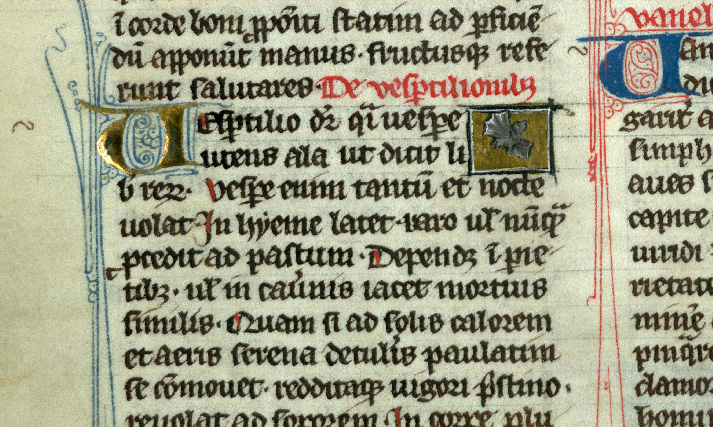 ī corde boni ꝓpoīti statim ad ꝑficiē
dū apponūt manus· fructusqꝫ refe
runt salutares· De vesꝑtilionibꝫ
Vesꝑtilio dr̄ qī uesꝑe
iutens ala ut dicit li
b̄ rerꝝ· Vesꝑe enim tantū et nocte
uolat· In hyeme latet· raro ul̓ nūqᷓ
ꝓcedit ad pastum· Dependꝫ ī ꝑie
tibꝫ· ul̓ in cauīnis iacet mortuis
similis· Quam si ad solis calorem
et aeris serena detul̓is paulatim
se cōmouet· redditaqꝫ uigori pͥstino·
reuolat ad sororem· In corꝑe plu
vanel
Van
du
garit̓ a
simpl
aues s
capite
uiridi
rietate
pinqͥre
clamor